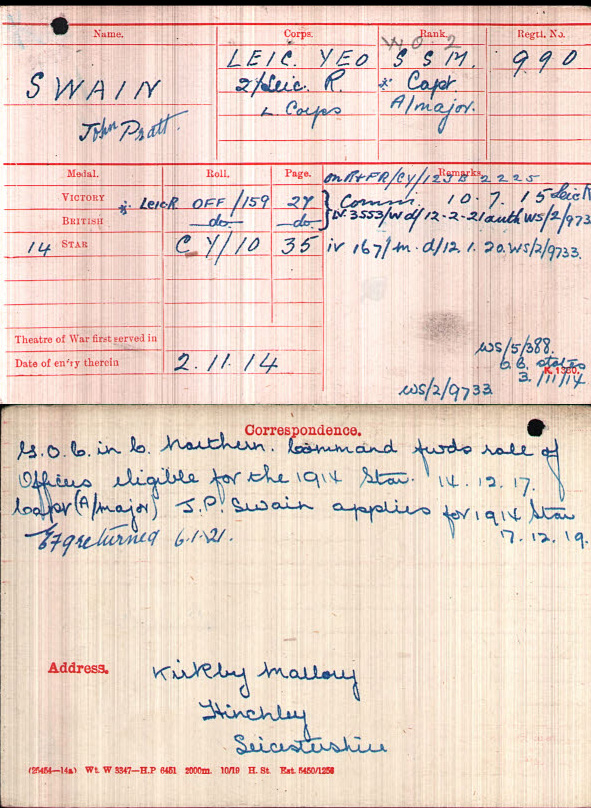 Name. Corps. Rank. Regtl. No.
W O. 2
SWAIN LEIC. YEO S S M. 990
John Pratt. 2/Leic. R. * Capt
L Corps A/major.
Medal. Roll. Page. Remarks.
on R+FR/CY/123B 2225
VICTORY * LeicR OFF/159 27 } Commn. 10. 7. 15 Leic R
BRITISH do do IV. 3553/Wd/12-2-21 auth WS/2/9733
14 STAR C Y/10 35 iv 167/m.d/12 1. 20. WS/2/9733.
Theatre of War first served in
Date of entry therein 2. 11. 14
WS/5/388.
6.6. states
K. 1380.
3/11/14
WS/2/9733
Correspondence.
G.O.C. in C. Northern. Command fwds role of
Officers eligible for the 1914 Star. 14. 12. 17.
Capt (A/major) J.P. Swain applies for 1914 Star
17. 12. 19.
EF9 returned 6.1.21.
Address. Kirkby Mallory
Hinckley
Leicestershire
(25454—14a) Wt. W 3347—H.P 6451 2000m. 10/19 H. St. Est. 5450/1258